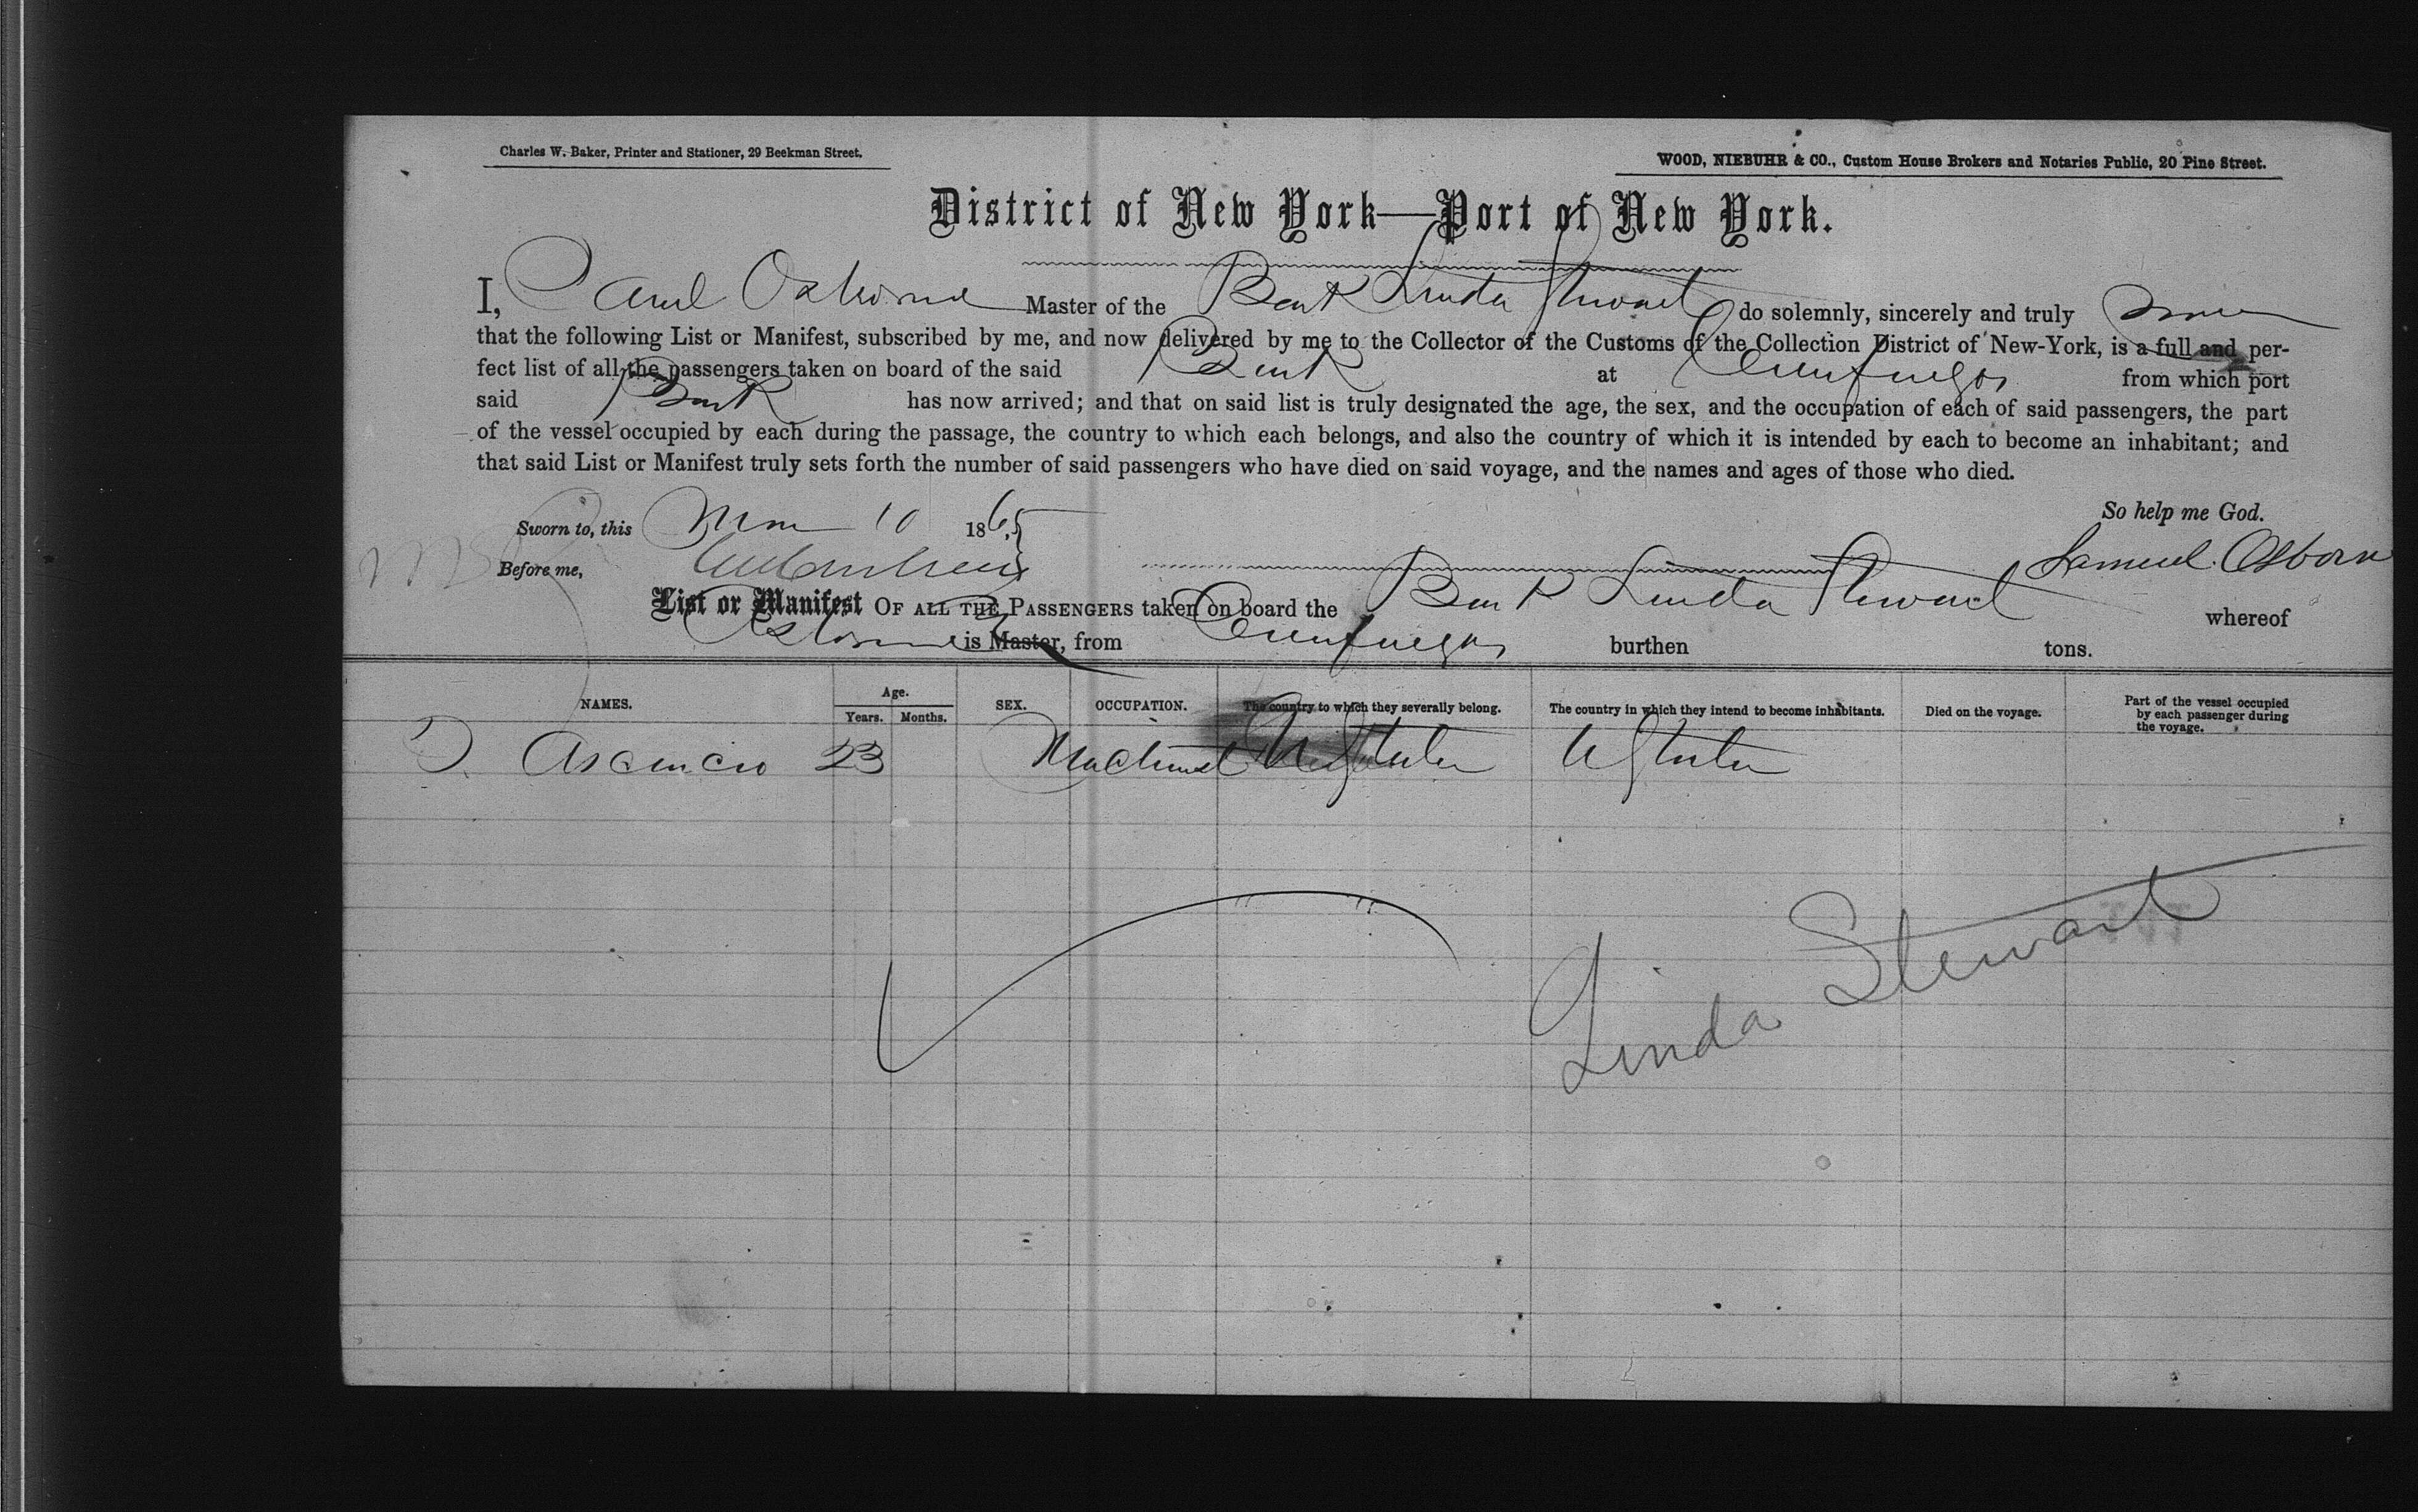 Charles W. Baker, Printer and Stationer, 29 Beekman Street.
WOOD, NIEBUHR & CO., Custom House Brokers and Notaries Public, 20 Pine Street.
District of New York—Port of New York.
I, Saml Osborne Master of the Bark Linda Stewart do solemnly, sincerely and truly swear
that the following List or Manifest, subscribed by me, and now delivered by me to the Collector of the Customs of the Collection District of New-York, is a full and per-
fect list of all the passengers taken on board of the said Bark at Cienfuegos from which port
said Bark has now arrived; and that on said list is truly designated the age, the sex, and the occupation of each of said passengers, the part
of the vessel occupied by each during the passage, the country to which each belongs, and also the country of which it is intended by each to become an inhabitant; and
that said List or Manifest truly sets forth the number of said passengers who have died on said voyage, and the names and ages of those who died.
So help me God.
Sworn to, this 10 1865
Samuel Osborn
Before me,
List or Manifest OF ALL THE PASSENGERS taken on board the Bark Linda Stewart whereof
Osborne is Master, from Cienfuegos burthen tons.
NAMES. Age. Years. Months. SEX. OCCUPATION. The country to which they severally belong. The country in which they intend to become inhabitants. Died on the voyage. Part of the vessel occupied by each passenger during the voyage.
D. Asencio 23 Machinist U States U States
Linda Stewart